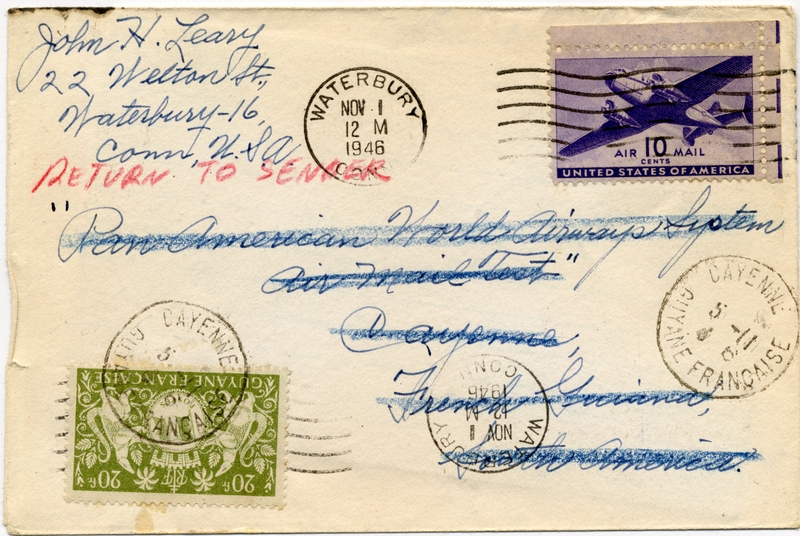 John H. Leary
22 Welton St.,
Waterbury-16,
Conn., U.S.A.
RETURN TO SENDER
WATERBURY
NOV 1
12 M
1946
CONN
AIR 10 MAIL
CENTS
UNITED STATES OF AMERICA
"Pan American World Airways System
Air Mail Test"
Cayenne,
French Guiana,
South America.
CAYENNE
5-11
GUYANE FRANÇAISE
CAYENNE
5
GUYANE FRANÇAISE
GUYANE FRANÇAISE
RF
20f 20f
WATERBURY
NOV 1
12 M
1946
CONN